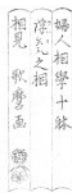 婦人相學十躰
浮気之相
相見 歌麿画